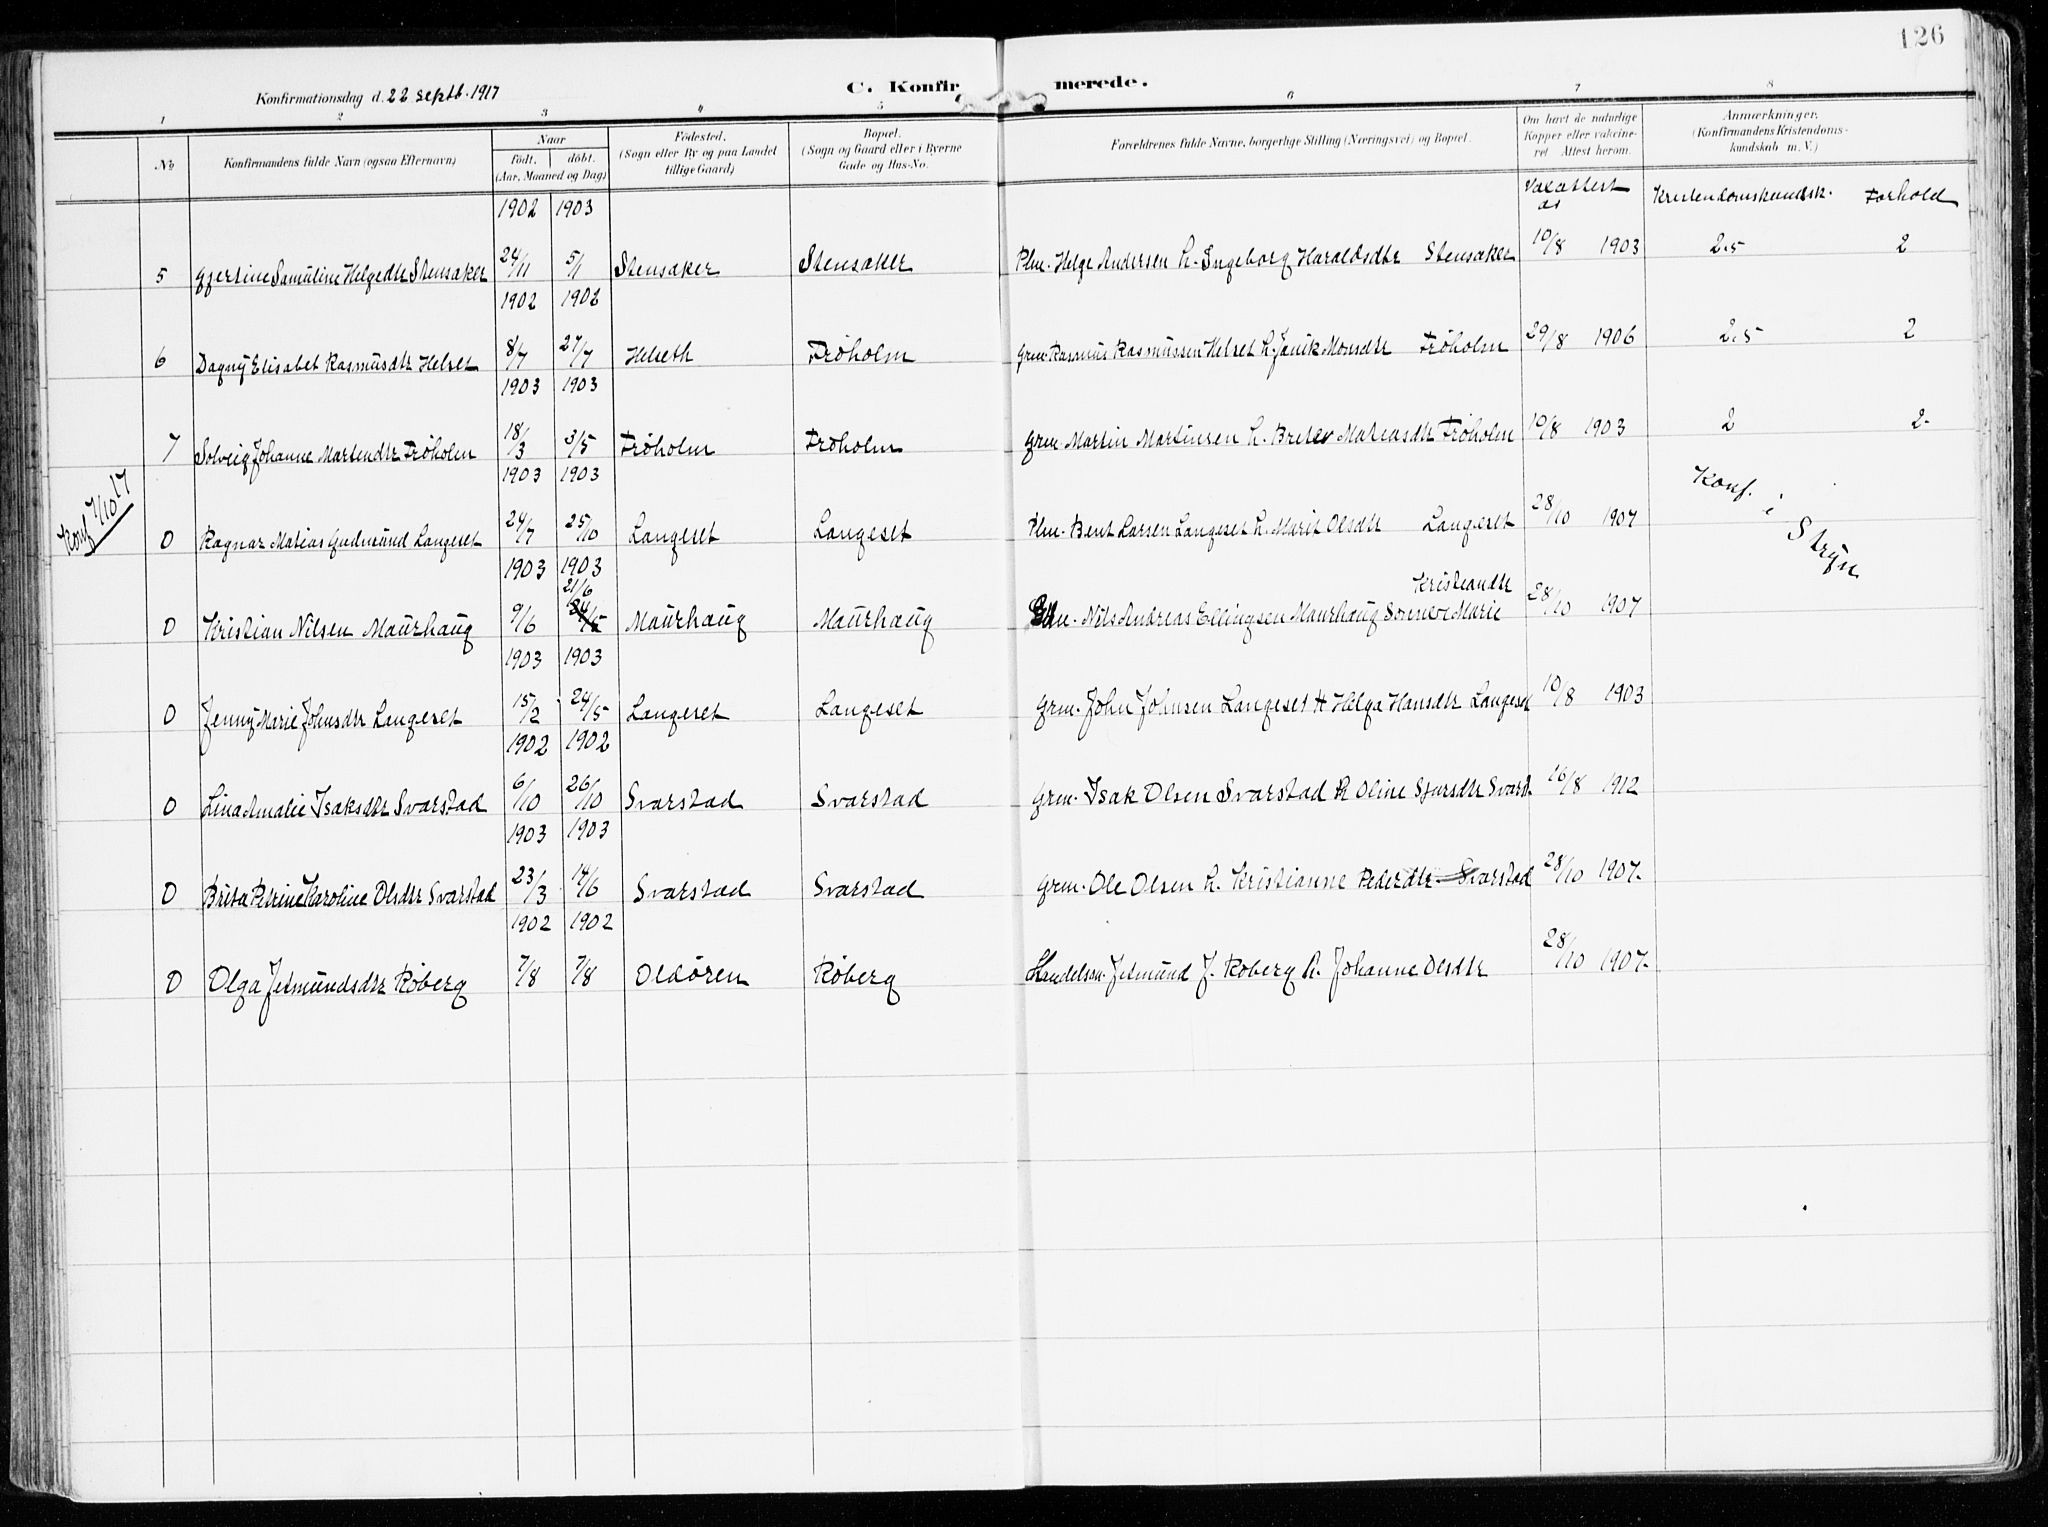 126
Konfirmationsdag d. 22 Septb. 1917
C. Konfirmerede.
1 2 3 4 5 6 7 8
No
Konfirmandens fulde Navn (ogsaa Efternavn)
Naar
födt. döbt.
(Aar, Maaned og Dag)
Födested.
(Sogn eller By og paa Landet
tillige Gaard)
Bopæl.
(Sogn og Gaard eller i Byerne
Gade og Hus-No.
Forældrenes fulde Navne, borgerlige Stilling (Næringsvei) og Bopæl.
Om havt de naturlige
Kopper eller vakcine-
ret Attest herom.
Anmærkninger.
(Konfirmandens Kristendoms-
kundskab m. V.)
Vaxattest
af
Kristendomskundsk. Forhold
1902 1903
5 Gjertine Samuline Helgedtr Stensaker 24/11 5/1 Stensaker Stensaker Plm. Helge Andersen h. Ingeborg Haraldsdtr Stensaker 10/8 1903 2.5 2
1902 1902
6 Dagny Elisabet Rasmusdtr Helset 8/7 27/7 Helseth Frøholm Grm. Rasmus Rasmussen Helset h. Janik Monsdtr Frøholm 29/8 1906 2.5 2
1903 1903
7 Solveig Johanne Martendtr Frøholm 18/3 3/5 Frøholm Frøholm Grm. Martin Martinsen h. Mateasdtr Frøholm 10/8 1903 2 2.
1903 1903
Konf 7/10 17
0 Ragnar Matias Gudmund Langeset 24/7 25/10 Langeset Langeset Plm. Bent Larsen Langeset h. Marit Olsdtr Langeset 28/10 1907
Konf. i Stryn
1903 1903
21/6
0 Kristian Nilsen Maurhaug 9/6 Maurhaug Maurhaug Nils Andreas Ellingsen Maurhaug Marie 28/10 1907
Kristiandtr
1903 1903
0 Jenny Marie Johnsdtr Langeset 15/2 24/5 Langeset Langeset Grm. John Johnsen Langeset H Helga Hansdtr Langeset 10/8 1903
1902 1902
0 Lina Amalie Isaksdtr Svarstad 6/10 26/10 Svarstad Svarstad Grm. Isak Olsen Svarstad h Oline Sjursdtr Svarst. 16/8 1912
1903 1903
0 Brita Petrine Karoline Olsdtr Svarstad 23/3 14/6 Svarstad Svarstad Grm. Ole Olsen h. Kristianne Pederdtr Svarstad 28/10 1907.
1902 1902
0 Olga Jetmundsdtr Røberg 7/8 7/8 Oldøren Røberg Handelsm. Jetmund J. Røberg h. Johanne Olsdtr 28/10 1907.